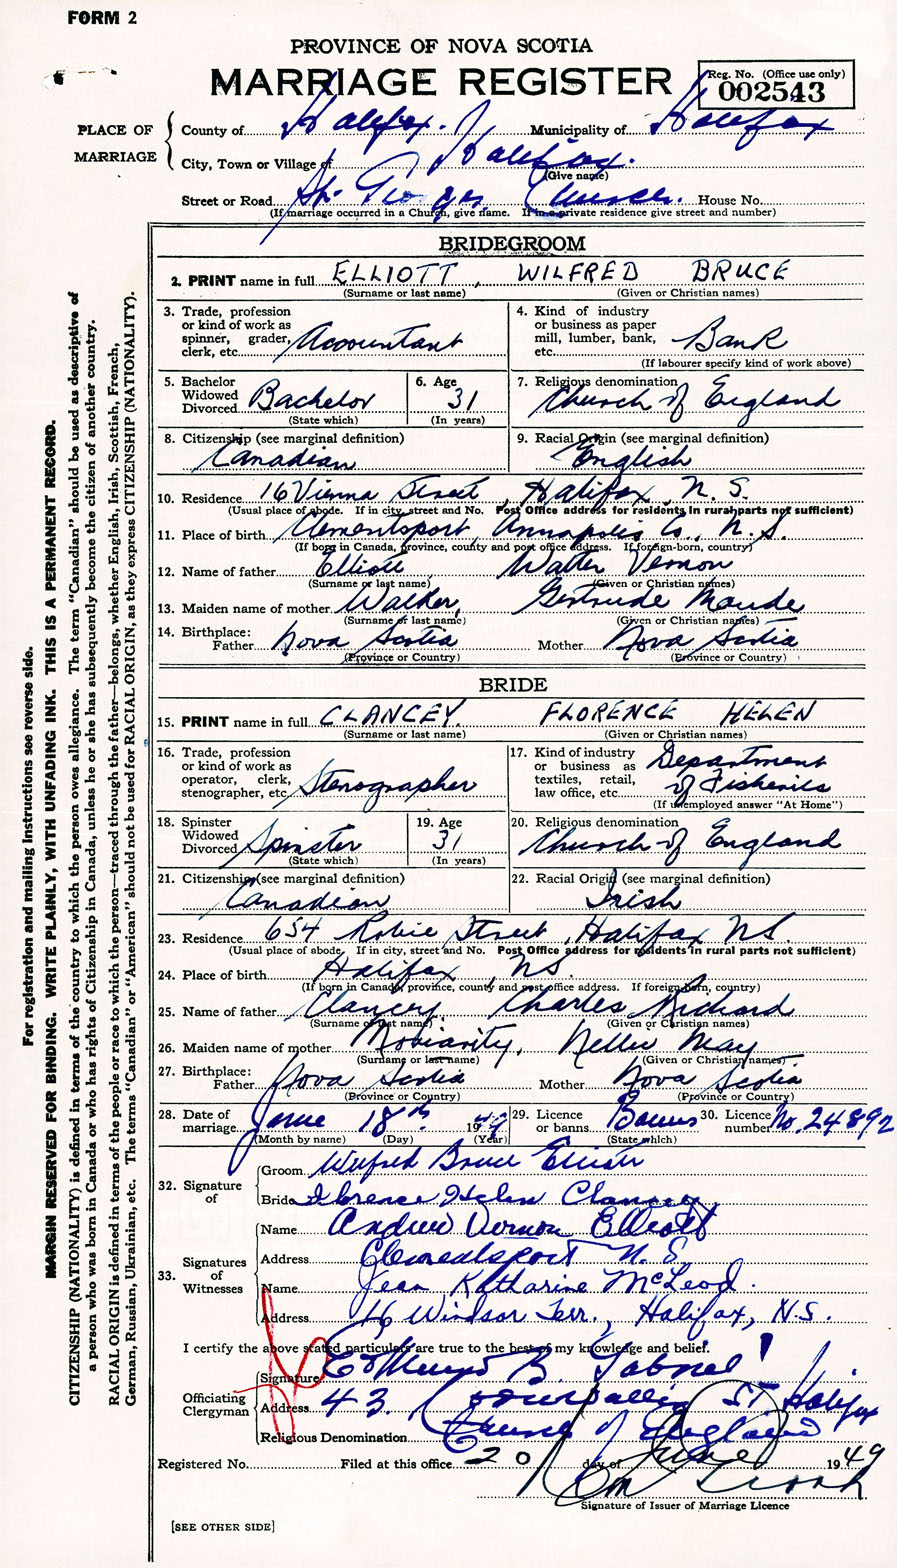 FORM 2
PROVINCE OF NOVA SCOTIA
MARRIAGE REGISTER
Reg. No. (Office use only)
002543
PLACE OF MARRIAGE
County of Halifax. Municipality of Halifax
City, Town or Village of Halifax.
(Give name)
Street or Road St. Georges Church. House No.
(If marriage occurred in a Church, give name. If in a private residence give street and number)
BRIDEGROOM
2. PRINT name in full ELLIOTT, WILFRED BRUCE
(Surname or last name) (Given or Christian names)
3. Trade, profession or kind of work as spinner, grader, clerk, etc. Accountant
4. Kind of industry or business as paper mill, lumber, bank, etc. Bank
(If labourer specify kind of work above)
5. Bachelor Widowed Divorced Bachelor
(State which)
6. Age 31
(In years)
7. Religious denomination Church of England
8. Citizenship (see marginal definition) Canadian
9. Racial Origin (see marginal definition) English
10. Residence 16 Vienna Street, Halifax, N.S.
(Usual place of abode. If in city, street and No. Post Office address for residents in rural parts not sufficient)
11. Place of birth Clementsport, Annapolis Co., N.S.
(If born in Canada, province, county and post office address. If foreign-born, country)
12. Name of father Elliott, Walter Vernon
(Surname or last name) (Given or Christian names)
13. Maiden name of mother Walder, Gertrude Maude
(Surname or last name) (Given or Christian names)
14. Birthplace: Father Nova Scotia Mother Nova Scotia
(Province or Country) (Province or Country)
BRIDE
15. PRINT name in full CLANCEY. FLORENCE HELEN
(Surname or last name) (Given or Christian names)
16. Trade, profession or kind of work as operator, clerk, stenographer, etc. Stenographer
17. Kind of industry or business as textiles, retail, law office, etc. Department of Fisheries
(If unemployed answer "At Home")
18. Spinster Widowed Divorced Spinster
(State which)
19. Age 31
(In years)
20. Religious denomination Church of England
21. Citizenship (see marginal definition) Canadian
22. Racial Origin (see marginal definition) Irish
23. Residence 654 Robie Street, Halifax N.S.
(Usual place of abode. If in city, street and No. Post Office address for residents in rural parts not sufficient)
24. Place of birth Halifax, N.S.
(If born in Canada, province, county and post office address. If foreign-born, country)
25. Name of father Clancey, Charles Richard
(Surname or last name) (Given or Christian names)
26. Maiden name of mother Moriarity, Nellie May
(Surname or last name) (Given or Christian names)
27. Birthplace: Father Nova Scotia Mother Nova Scotia
(Province or Country) (Province or Country)
28. Date of marriage June 18th 1949
(Month by name) (Day) (Year)
29. Licence or banns Banns
(State which)
30. Licence number No. 24892
32. Signature of
Groom Wilfred Bruce Elliott
Bride Florence Helen Clancey
33. Signatures of Witnesses
Name Andrew Vernon Elliott
Address Clementsport N.S.
Name Jean Katharine McLeod.
Address 16 Windsor Terr., Halifax, N.S.
I certify the above stated particulars are true to the best of my knowledge and belief.
Officiating Clergyman
Signature B.
Address 43. St Halifax
Religious Denomination Church of England
Registered No. Filed at this office 20 day of June 1949
Signature of Issuer of Marriage Licence
[SEE OTHER SIDE]
For registration and mailing instructions see reverse side.
MARGIN RESERVED FOR BINDING. WRITE PLAINLY, WITH UNFADING INK. THIS IS A PERMANENT RECORD.
CITIZENSHIP (NATIONALITY) is defined in terms of the country to which the person owes allegiance. The term "Canadian" should be used as descriptive of
a person who was born in Canada or who has rights of Citizenship in Canada, unless he or she has subsequently become the citizen of another country.
RACIAL ORIGIN is defined in terms of the people or race to which the person—traced through the father—belongs, whether English, Irish, Scottish, French,
German, Russian, Ukrainian, etc. The terms "Canadian" or "American" should not be used for RACIAL ORIGIN, as they express CITIZENSHIP (NATIONALITY).